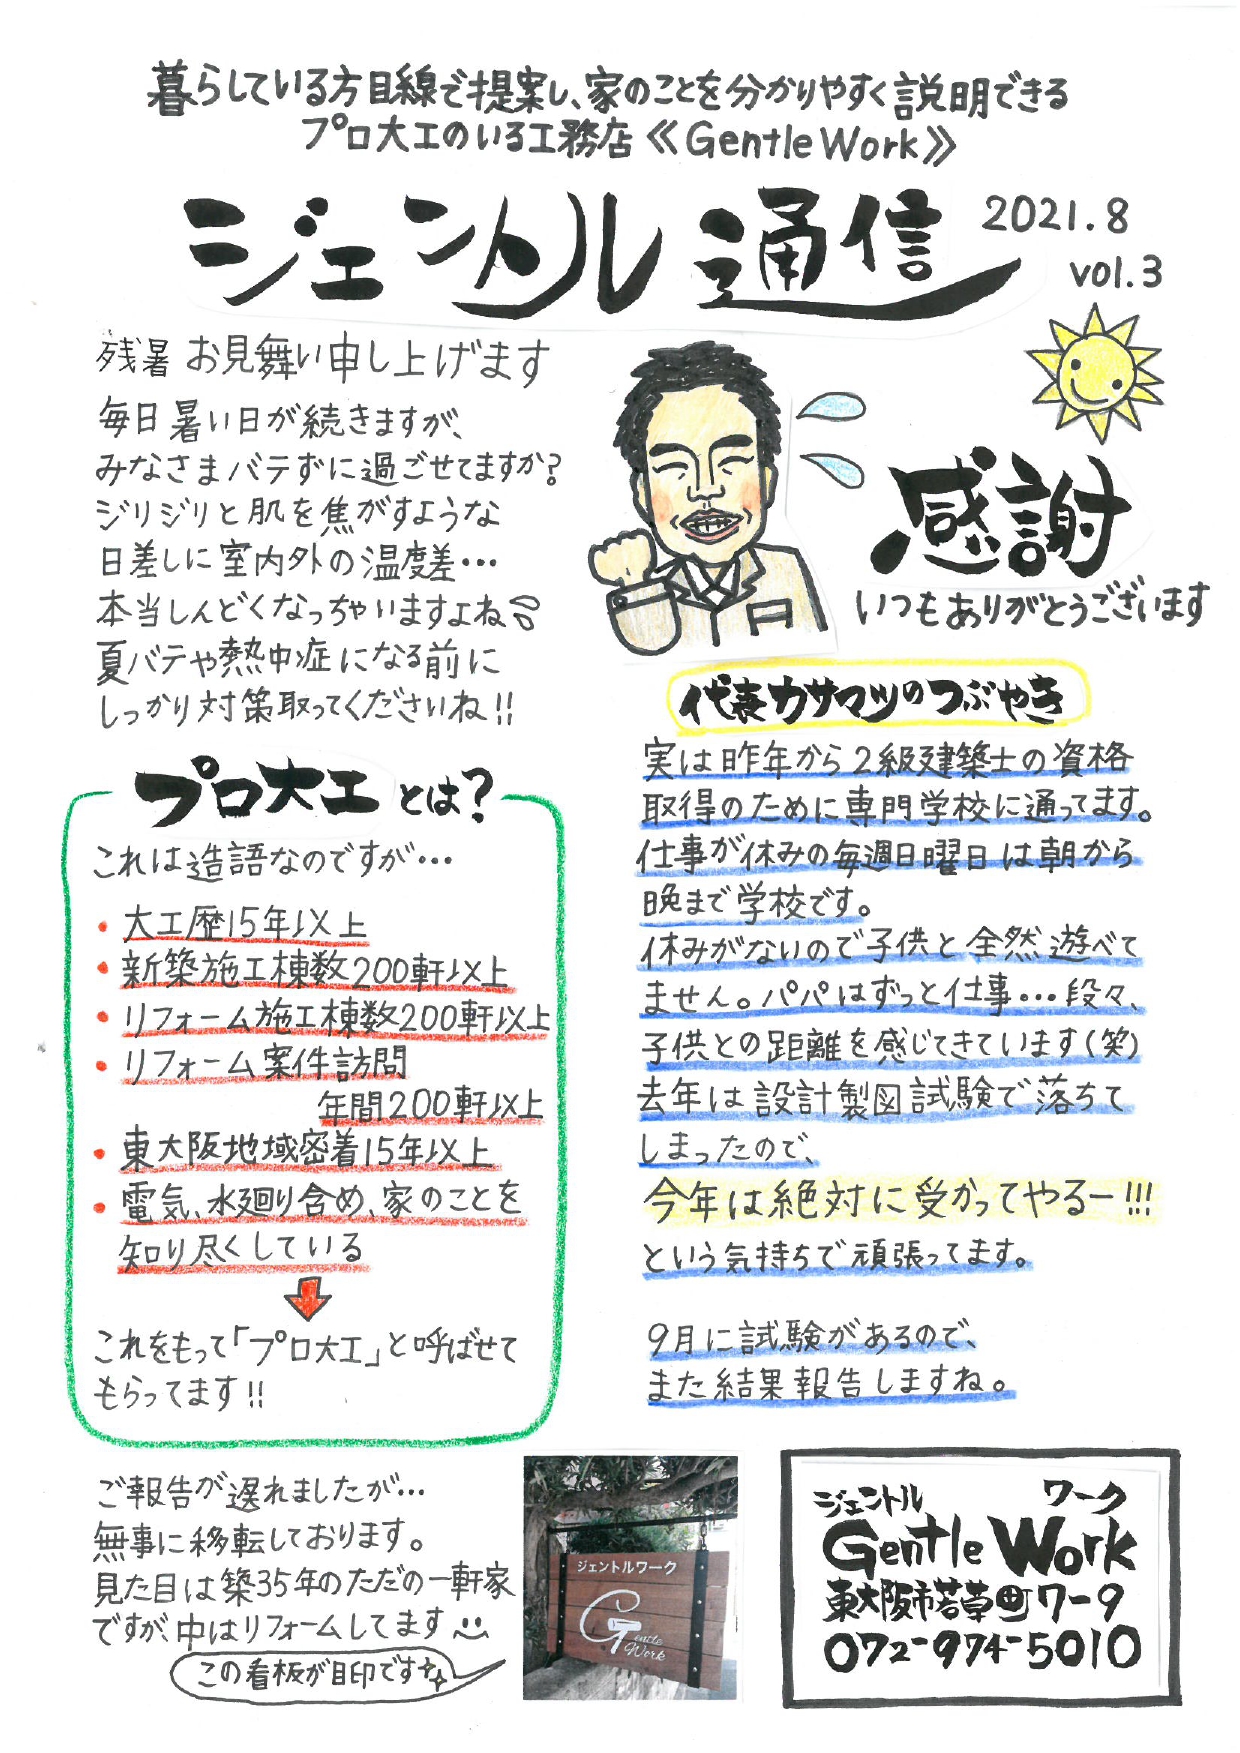 暮らしている方目線で提案し、家のことを分かりやすく説明できる
プロ大工のいる工務店《Gentle Work》
ジェントル通信
2021.8
vol.3
残暑 お見舞い申し上げます
毎日暑い日が続きますが、
みなさまバテずに過ごせてますか?
ジリジリと肌を焦がすような
日差しに室内外の温度差…
本当しんどくなっちゃいますよね
夏バテや熱中症になる前に
しっかり対策取ってくださいね!!
感謝
いつもありがとうございます
プロ大工とは?
これは造語なのですが…
・大工歴15年以上
・新築施工棟数200軒以上
・リフォーム施工棟数200軒以上
・リフォーム案件訪問
年間200軒以上
・東大阪地域密着15年以上
・電気、水廻り含め、家のことを
知り尽くしている
これをもって「プロ大工」と呼ばせて
もらってます!!
代表カサマツのつぶやき
実は昨年から2級建築士の資格
取得のために専門学校に通ってます。
仕事が休みの毎週日曜日は朝から
晩まで学校です。
休みがないので子供と全然遊べて
ません。パパはずっと仕事…段々、
子供との距離を感じてきています(笑)
去年は設計製図試験で落ちて
しまったので、
今年は絶対に受かってやるー!!!
という気持ちで頑張ってます。
9月に試験があるので、
また結果報告しますね。
ご報告が遅れましたが…
無事に移転しております。
見た目は築35年のただの一軒家
ですが、中はリフォームしてます
この看板が目印です
ジェントルワーク
Gentle
Work
ジェントル ワーク
Gentle Work
東大阪市若草町7-9
072-974-5010